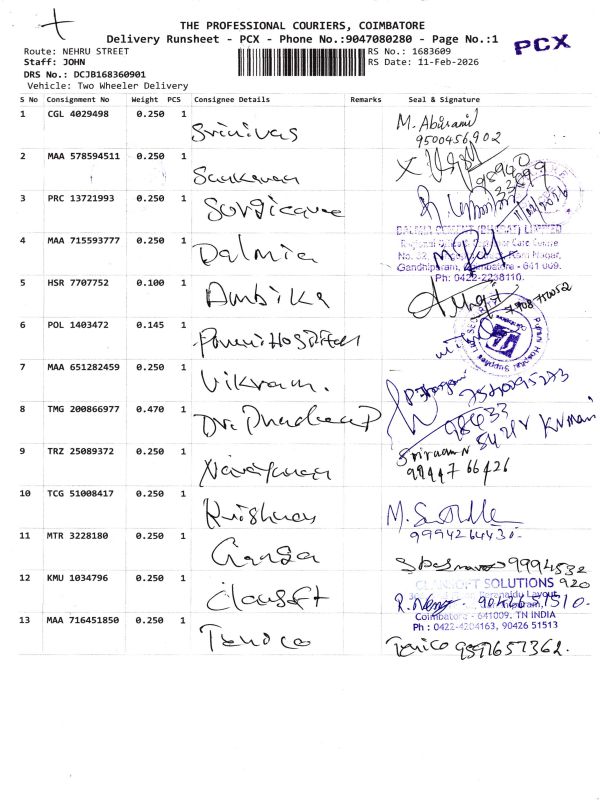 THE PROFESSIONAL COURIERS, COIMBATORE
Delivery Runsheet - PCX - Phone No.:9047080280 - Page No.:1
PCX
Route: NEHRU STREET
RS No.: 1683609
Staff: JOHN
RS Date: 11-Feb-2026
DRS No.: DCJB168360901
Vehicle: Two Wheeler Delivery
S No Consignment No Weight PCS Consignee Details Remarks Seal & Signature
1 CGL 4029498 0.250 1 Srinivas M. Abirami
9500456902
2 MAA 578594511 0.250 1 Sankaran
3 PRC 13721993 0.250 1
DALMIA CEMENT (BHARAT) LIMITED
4 MAA 715593777 0.250 1 Dalmia
Gandhipuram, Coimbatore - 641 009.
Ph: 0422-2238110.
5 HSR 7707752 0.100 1 Ambika
6 POL 1403472 0.145 1 Hospital
7 MAA 651282459 0.250 1 Vikram.
8 TMG 200866977 0.470 1 Dr. 98433
9 TRZ 25089372 0.250 1 Narayanan Sriram N
99447 66426
10 TCG 51008417 0.250 1 Krishnas M.
9994264430.
11 MTR 3228180 0.250 1 Ganga 9994532
920
CLANSOFT SOLUTIONS
12 KMU 1034796 0.250 1 Clansoft 9042651510.
Coimbatore - 641009. TN INDIA
Ph : 0422-4204163, 90426 51513
13 MAA 716451850 0.250 1 Tenico Tenico 9597657362.